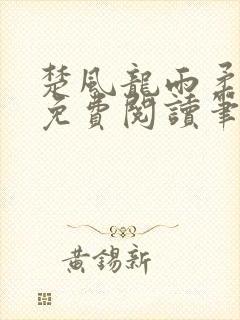 楚風龍雨柔
免費閱讀筆
黃錫新